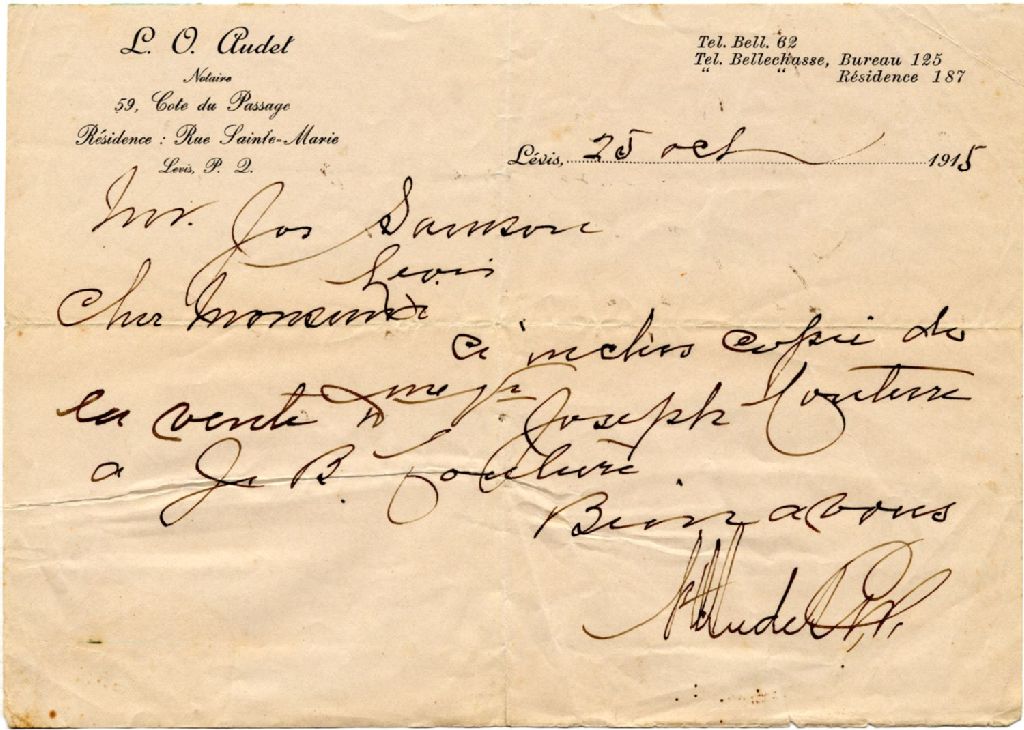 L. O. Audet
Notaire
59, Cote du Passage
Résidence : Rue Sainte-Marie
Levis, P. Q.
Tel. Bell. 62
Tel. Bellechasse, Bureau 125
" " Résidence 187
Lévis, 25 oct 1915
Mr. Jos Samson
Levis
Cher Monsieur
Ci inclus copie de
la vente Joseph Couture
a J. B. Couture
Bien a vous
Audet N.P.